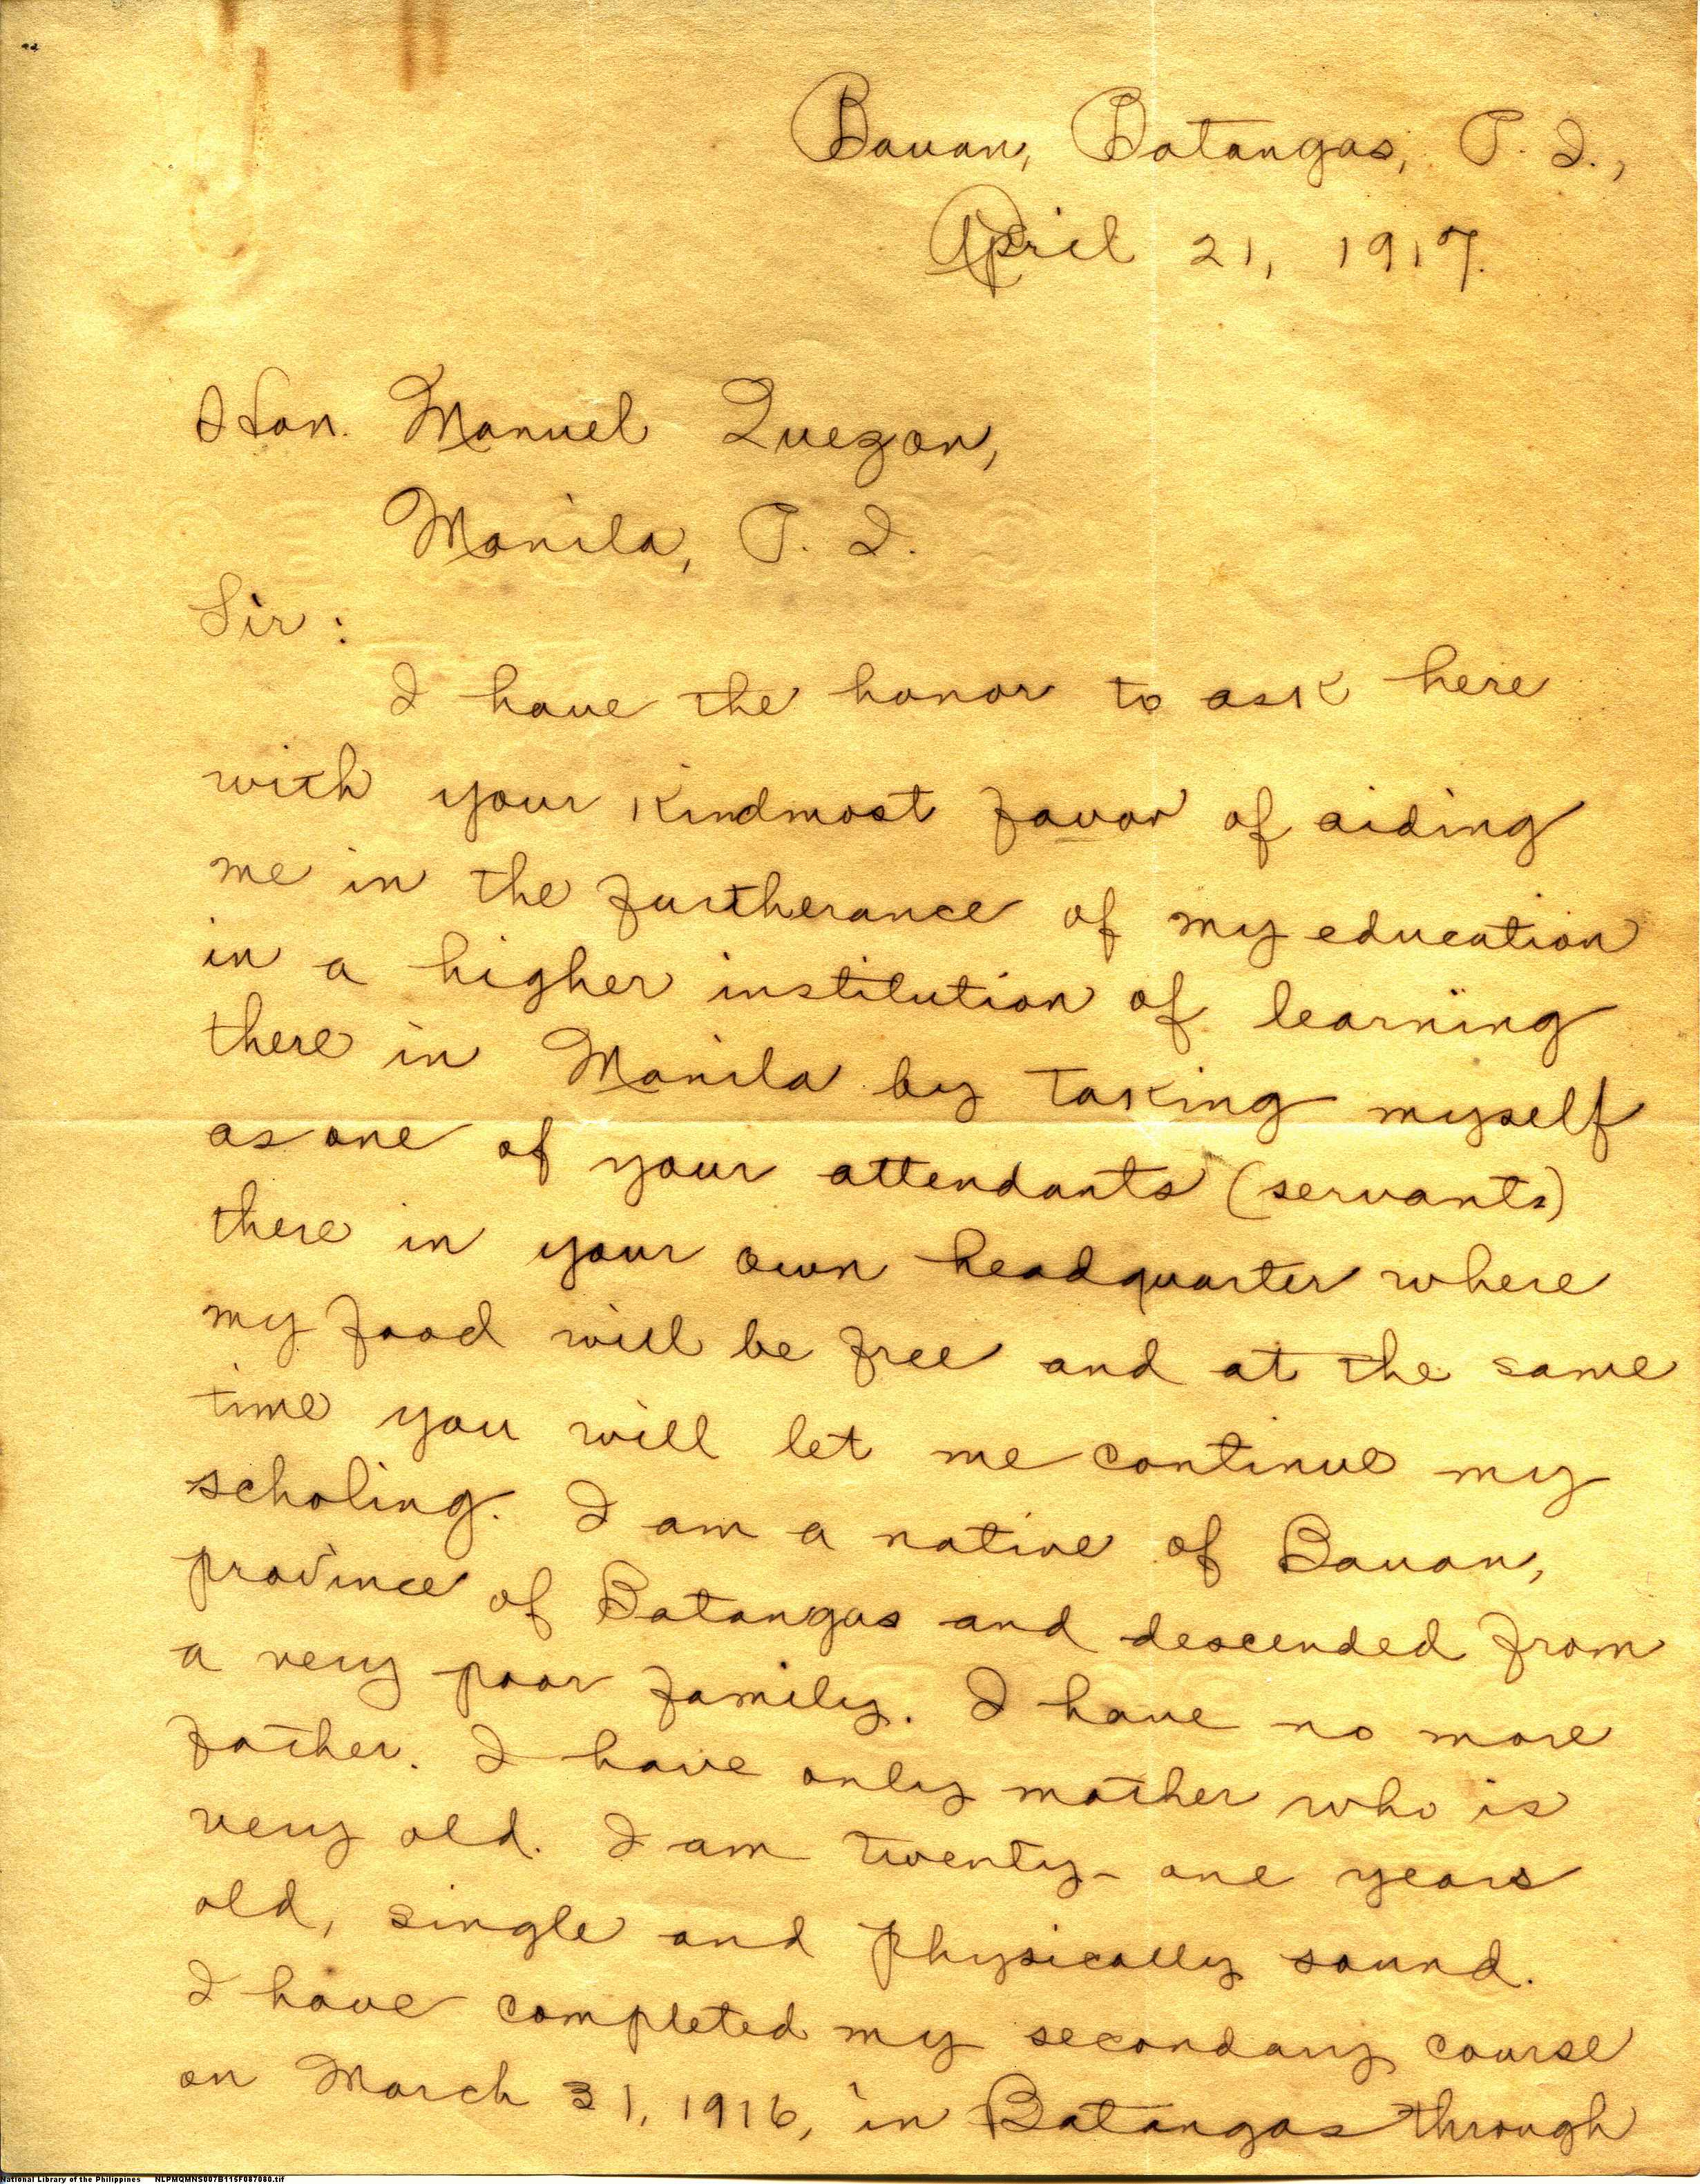 Bauan, Batangas, P. I.,
April 21, 1917.
Hon. Manuel Quezon,
Manila, P. I.
Sir:
I have the honor to ask here
with your kindmost favor of aiding
me in the furtherance of my education
in a higher institution of learning
there in Manila by taking myself
as one of your attendants (servants)
there in your own headquarter where
my food will be free and at the same
time you will let me continue my
scholing. I am a native of Bauan,
province of Batangas and descended from
a very poor family. I have no more
father. I have only mother who is
very old. I am twenty-one years
old, single and physically sound.
I have completed my secondary course
on March 31, 1916, in Batangas through
National Library of the Philippines NLPMQMNS007B115F087080.tif